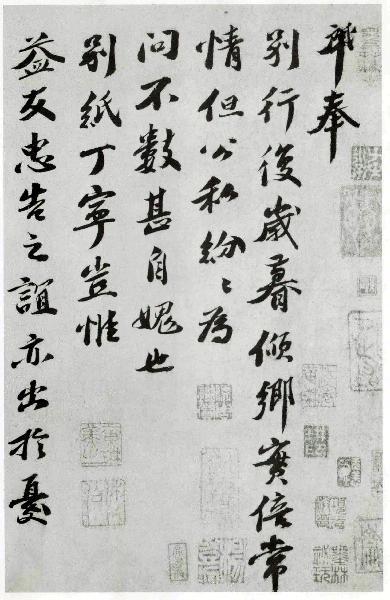 奉
別行後歲暮傾鄉實倍常
情但公私紛〻為
問不數甚自媿也
別紙丁寧豈惟
益友忠告之誼亦出於憂